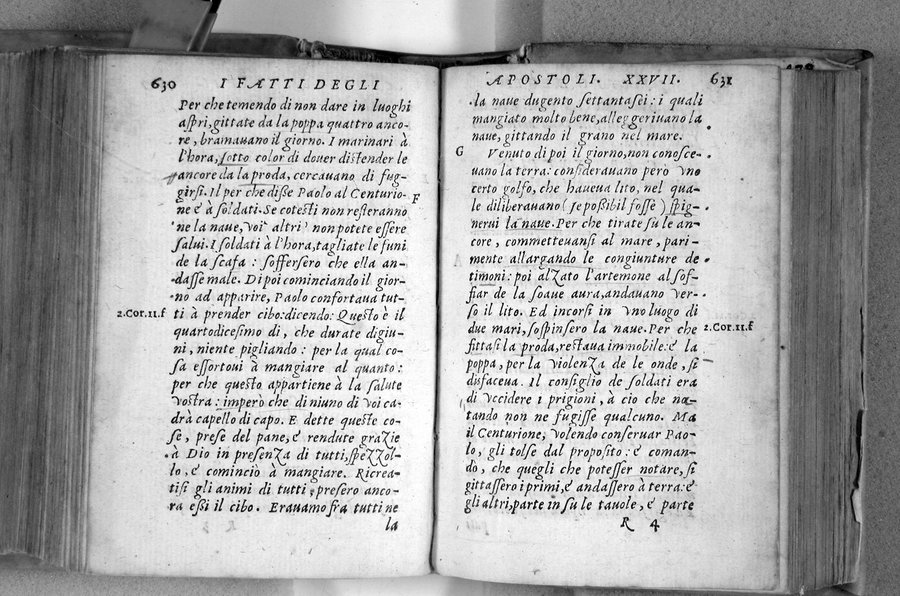 630 I FATTI DEGLI
Per che temendo di non dare in luoghi
aspri, gittate da la poppa quattro anco-
re, bramauano il giorno. I marinari à
l'hora, sotto color di douer distender le
ancore da la proda, cercauano di fug-
girsi. Il per che disse Paolo al Centurio-
ne è à soldati. Se cotesti non resteranno
ne la naue, voi altri non potete essere
salui. I soldati à l'hora, tagliate le funi
de la scafa: soffersero che ella an-
dasse male. Di poi cominciando il gior-
no ad apparire, Paolo confortaua tut-
ti à prender cibo: dicendo: Questo è il
quartodicesimo di, che durate digiu-
ni, niente pigliando: per la qual co-
sa essortoui à mangiare al quanto:
per che questo appartiene à la salute
vostra: imperò che di niuno di voi ca-
drà capello di capo. E dette queste co-
se, prese del pane, e rendute grazie
à Dio in presenza di tutti, spezzol-
lo, e cominciò à mangiare. Ricrea-
tisi gli animi di tutti, presero anco-
ra essi il cibo. Erauamo fra tutti ne
la
F
2.Cor.11.f
APOSTOLI. XXVII. 631
la naue dugento settantasei: i quali
mangiato molto bene, alleggeriuano la
naue, gittando il grano nel mare.
G
Venuto di poi il giorno, non conosce-
uano la terra: considerauano però vno
certo golfo, che haueua lito, nel qua-
le diliberauano (se possibil fosse) spig-
nerui la naue. Per che tirate sù le an-
core, commetteuansi al mare, pari-
mente allargando le congiunture de
timoni: poi alzato l'artemone al sof-
fiar de la soaue aura, andauano ver-
so il lito. Ed incorsi in vno luogo di
due mari, sospinsero la naue. Per che
fittasi la proda, restaua immobile: e la
poppa, per la violenza de le onde, si
disfaceua. Il consiglio de soldati era
di vccidere i prigioni, à cio che no-
tando non ne fugisse qualcuno. Ma
il Centurione, volendo conseruar Pao-
lo, gli tolse dal proposito: e coman-
dò, che quegli che potesser notare, si
gittassero i primi, e andassero à terra: e
gli altri, parte in su le tauole, e parte
R 4
2.Cor.11.f